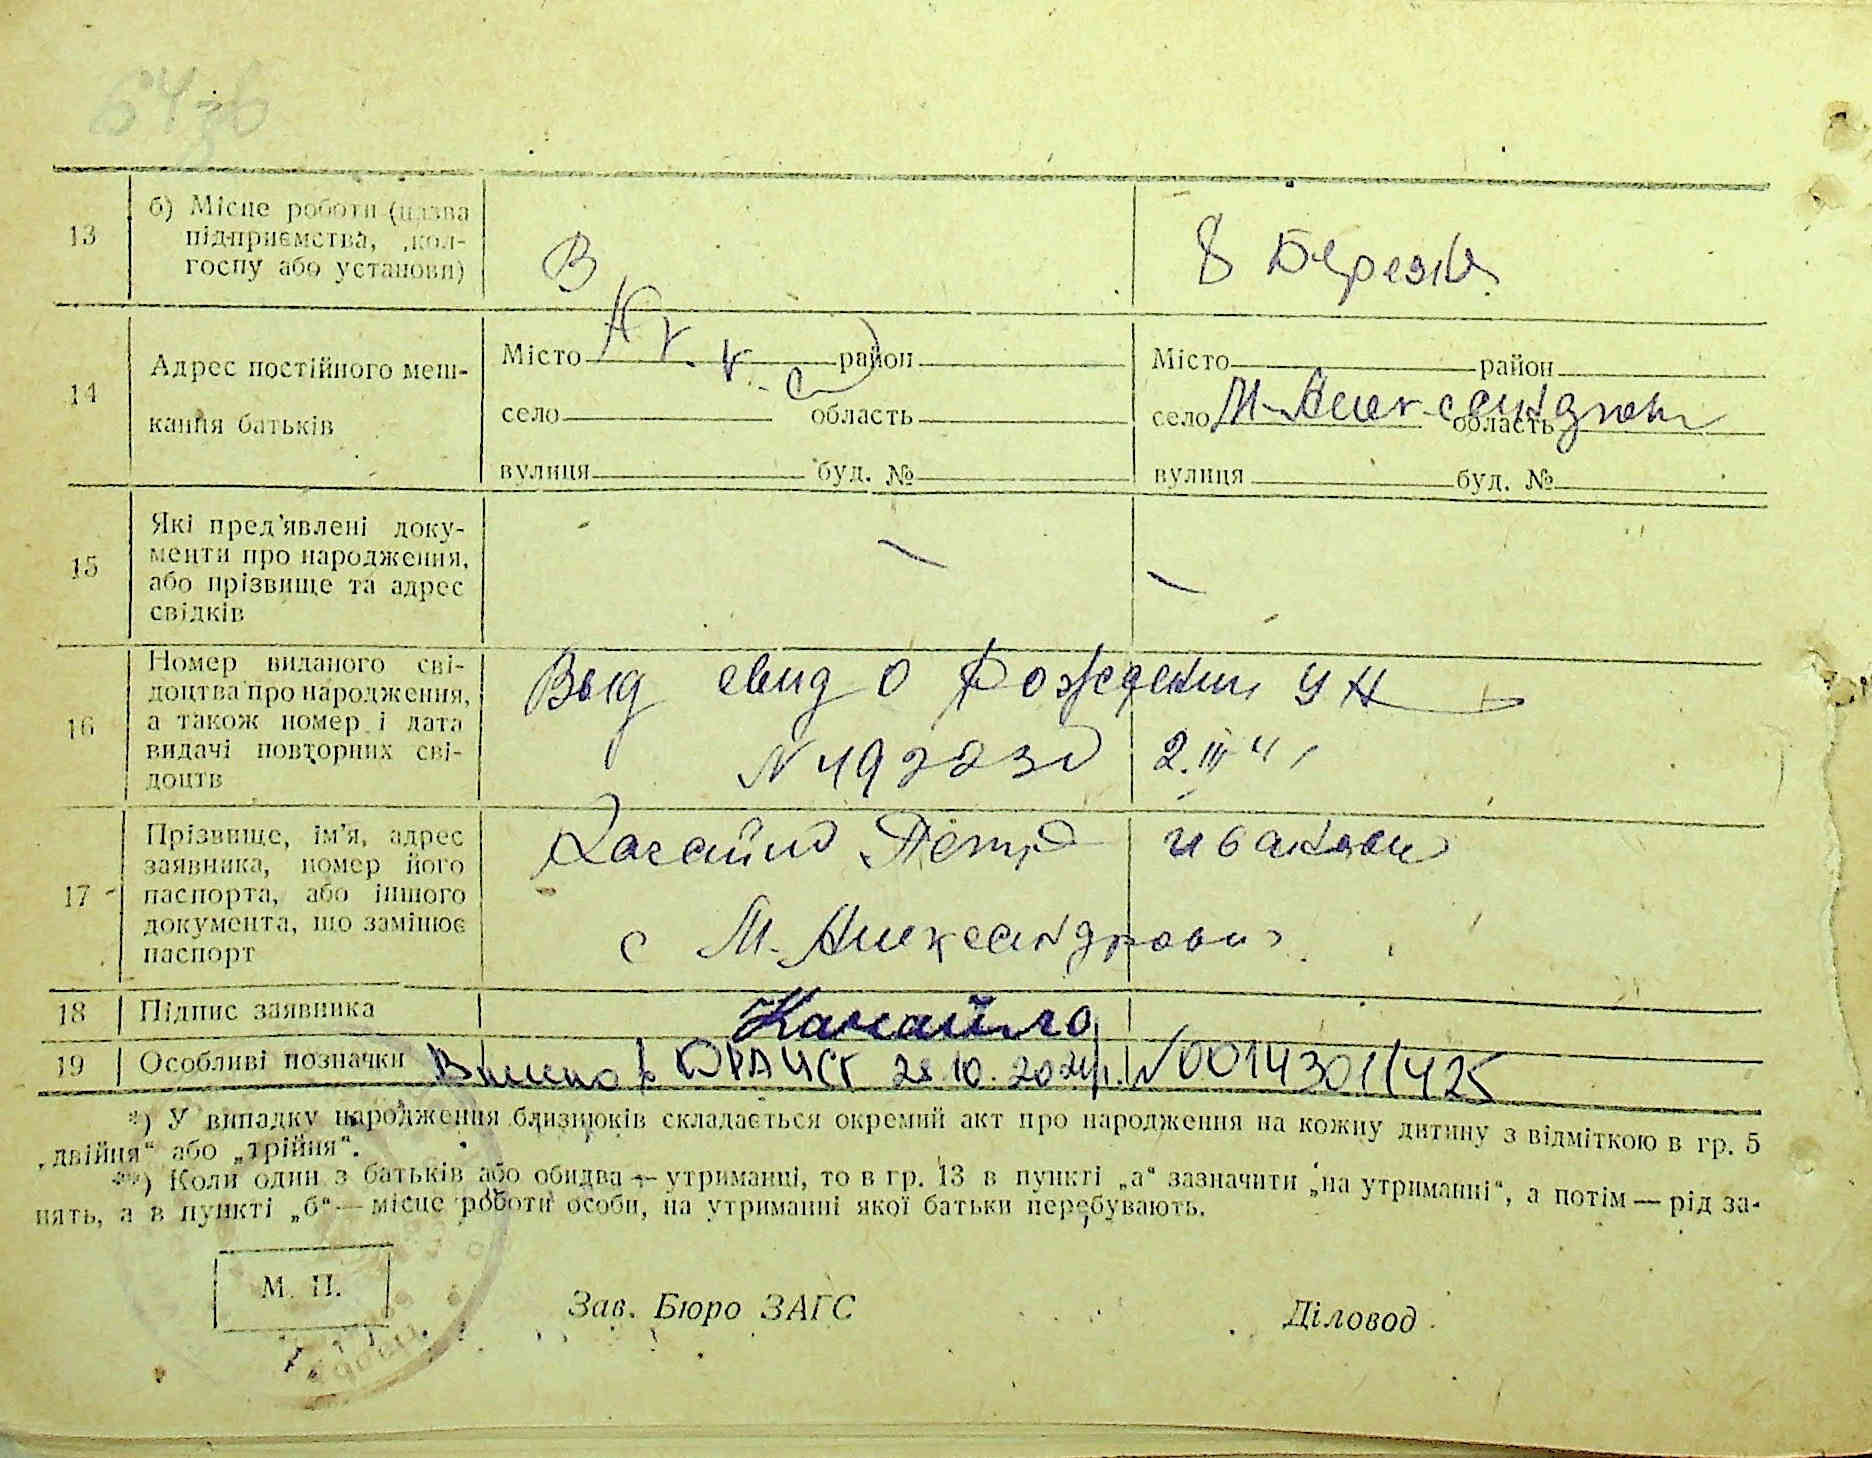 64 зв
13
б) Місце роботи (назва
підприємства, кол-
госпу або установи)
В
8 Березня
14
Адрес постійного меш-
кання батьків
Місто район
село область
вулиця буд. №
Місто район
село М-Александров область
вулиця буд. №
15
Які пред'явлені доку-
менти про народження,
або прізвище та адрес
свідків
16
Номер виданого сві-
доцтва про народження,
а також номер і дата
видачі повторних сві-
доцтв
Выд свид о Рождении УН
2.III 41
17
Прізвище, ім'я, адрес
заявника, номер його
паспорта, або іншого
документа, що замінює
паспорт
Петр Иванович
с М-Александровка
18
Підпис заявника
19
Особливі позначки
ДРАЦСГ 28.10.2021р. №00143011425
*) У випадку народження близнюків складається окремий акт про народження на кожну дитину з відміткою в гр. 5
„двійня“ або „трійня“.
**) Коли один з батьків або обидва — утриманці, то в гр. 13 в пункті „а“ зазначити „на утриманні“, а потім — рід за-
нять, а в пункті „б“ — місце роботи особи, на утриманні якої батьки перебувають.
М. П.
Зав. Бюро ЗАГС
Діловод